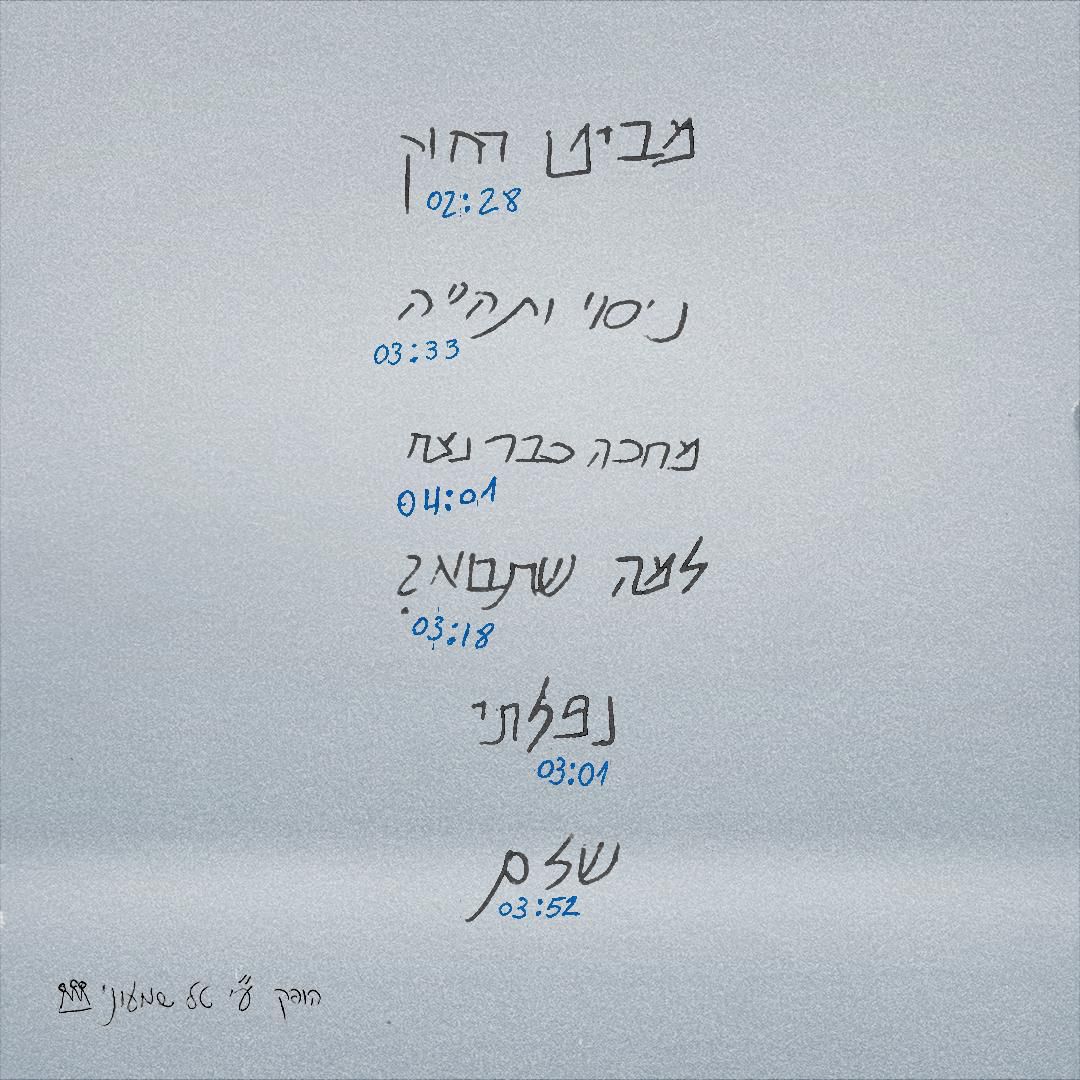 מביט רחוק
02:28
ניסוי ותהייה
03:33
מחכה כבר נצח
04:01
למה שתבוא?
03:18
נפלתי
03:01
שלם
03:52
הופק ע״י טל שמעוני